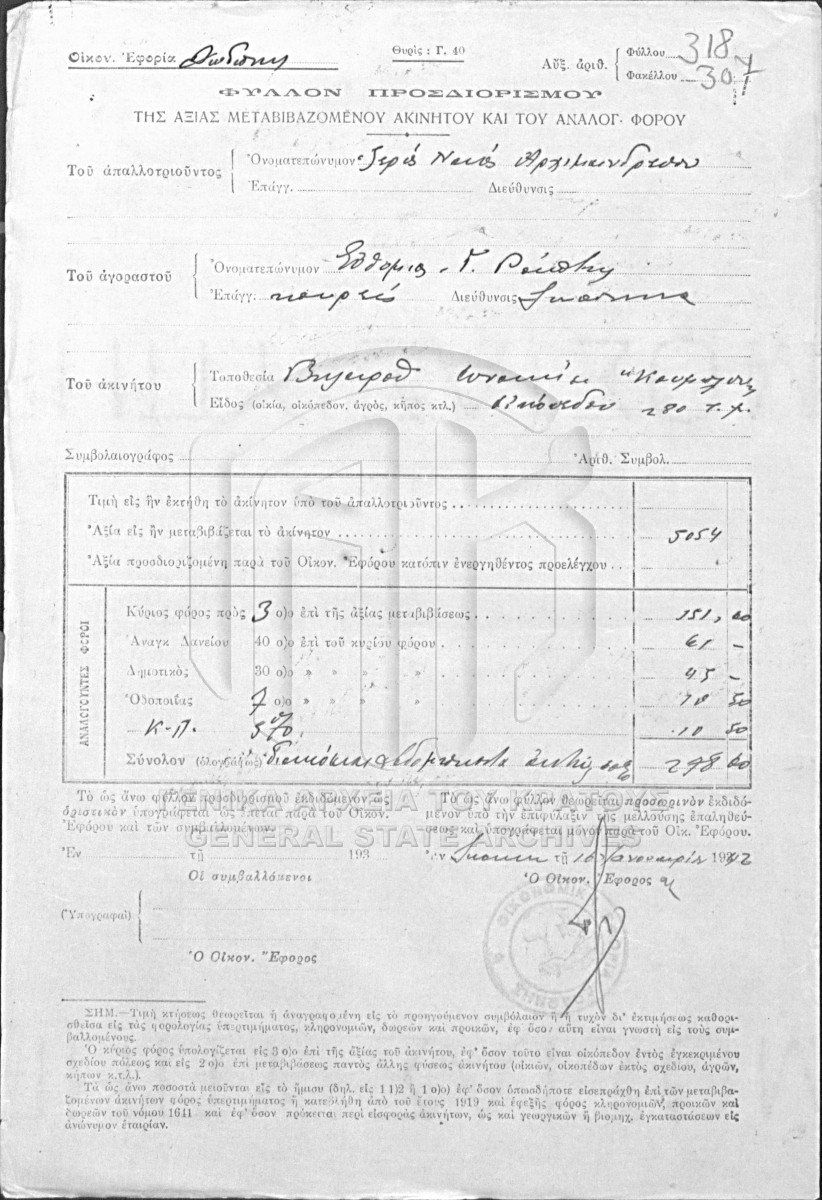 Οἰκον. Ἐφορία
Θυρὶς : Γ. 40
Αὔξ. ἀριθ. Φύλλου 318
Φακέλλου 307
ΦΥΛΛΟΝ ΠΡΟΣΔΙΟΡΙΣΜΟΥ
ΤΗΣ ΑΞΙΑΣ ΜΕΤΑΒΙΒΑΖΟΜΕΝΟΥ ΑΚΙΝΗΤΟΥ ΚΑΙ ΤΟΥ ΑΝΑΛΟΓ. ΦΟΡΟΥ
Τοῦ ἀπαλλοτριοῦντος Ὀνοματεπώνυμον Ἱερὸς Ναὸς
Ἐπάγγ. Διεύθυνσις
Τοῦ ἀγοραστοῦ Ὀνοματεπώνυμον Γ.
Ἐπάγγ. κουρεὺς Διεύθυνσις
Τοῦ ἀκινήτου Τοποθεσία
Εἶδος (οἰκία, οἰκόπεδον, ἀγρός, κῆπος κτλ.) οἰκόπεδον 280 τ.μ.
Συμβολαιογράφος Ἀριθ. Συμβολ.
Τιμὴ εἰς ἣν ἐκτήθη τὸ ἀκίνητον ὑπὸ τοῦ ἀπαλλοτριοῦντος
Ἀξία εἰς ἣν μεταβιβάζεται τὸ ἀκίνητον 5054
Ἀξία προσδιοριζομένη παρὰ τοῦ Οἰκον. Ἐφόρου κατόπιν ἐνεργηθέντος προελέγχου
ΑΝΑΛΟΓΟΥΝΤΕΣ ΦΟΡΟΙ
Κύριος φόρος πρὸς 3 ο)ο ἐπὶ τῆς ἀξίας μεταβιβάσεως 151,
Ἀναγκ Δανείου 40 ο)ο ἐπὶ τοῦ κυρίου φόρου 61 –
Δημοτικὸς 30 ο)ο » » » 45 –
Ὁδοποιΐας 7 ο)ο » » » 50
Κ-Π. 10 50
Σύνολον (ὁλογράφως) διακόσια 278
ΓΕΝΙΚΑ ΑΡΧΕΙΑ ΤΟΥ ΚΡΑΤΟΥΣ
GENERAL STATE ARCHIVES
Τὸ ὡς ἄνω φύλλον προσδιορισμοῦ ἐκδιδόμενον ὡς
ὁριστικὸν ὑπογράφεται ὡς ἕπεται παρὰ τοῦ Οἰκον.
Ἐφόρου καὶ τῶν συμβαλλομένων.
Ἐν τῇ 193
Οἱ συμβαλλόμενοι
(Ὑπογραφαὶ)
Ὁ Οἰκον. Ἔφορος
Τὸ ὡς ἄνω φύλλον θεωρεῖται προσωρινὸν ἐκδιδό-
μενον ὑπὸ τὴν ἐπιφύλαξιν τῆς μελλούσης ἐπαληθεύ-
σεως καὶ ὑπογράφεται μόνον παρὰ τοῦ Οἰκ. Ἐφόρου.
Ἐν τῇ 16 Ἰανουαρίου
Ὁ Οἰκον. Ἔφορος
ΣΗΜ.—Τιμὴ κτήσεως θεωρεῖται ἡ ἀναγραφομένη εἰς τὸ προηγούμενον συμβόλαιον ἢ ἡ τυχὸν δι' ἐκτιμήσεως καθορι-
σθεῖσα εἰς τὰς φορολογίας ὑπερτιμήματος, κληρονομιῶν, δωρεῶν καὶ προικῶν, ἐφ' ὅσον αὕτη εἶναι γνωστὴ εἰς τοὺς συμ-
βαλλομένους.
Ὁ κύριος φόρος ὑπολογίζεται εἰς 3 ο)ο ἐπὶ τῆς ἀξίας τοῦ ἀκινήτου, ἐφ' ὅσον τοῦτο εἶναι οἰκόπεδον ἐντὸς ἐγκεκριμένου
σχεδίου πόλεως καὶ εἰς 2 ο)ο ἐπὶ μεταβιβάσεως παντὸς ἄλλης φύσεως ἀκινήτου (οἰκιῶν, οἰκοπέδων ἐκτὸς σχεδίου, ἀγρῶν,
κήπων κ.τ.λ.).
Τὰ ὡς ἄνω ποσοστὰ μειοῦνται εἰς τὸ ἥμισυ (δηλ. εἰς 1 1)2 ἢ 1 ο)ο) ἐφ' ὅσον ὁπωσδήποτε εἰσεπράχθη ἐπὶ τῶν μεταβιβα-
ζομένων ἀκινήτων φόρος ὑπερτιμήματος ἢ κατεβλήθη ἀπὸ τοῦ ἔτους 1919 καὶ ἐφεξῆς φόρος κληρονομιῶν, προικῶν καὶ
δωρεῶν τοῦ νόμου 1641 καὶ ἐφ' ὅσον πρόκειται περὶ εἰσφορᾶς ἀκινήτων, ὡς καὶ γεωργικῶν ἢ βιομηχ. ἐγκαταστάσεων εἰς
ἀνώνυμον ἑταιρίαν.